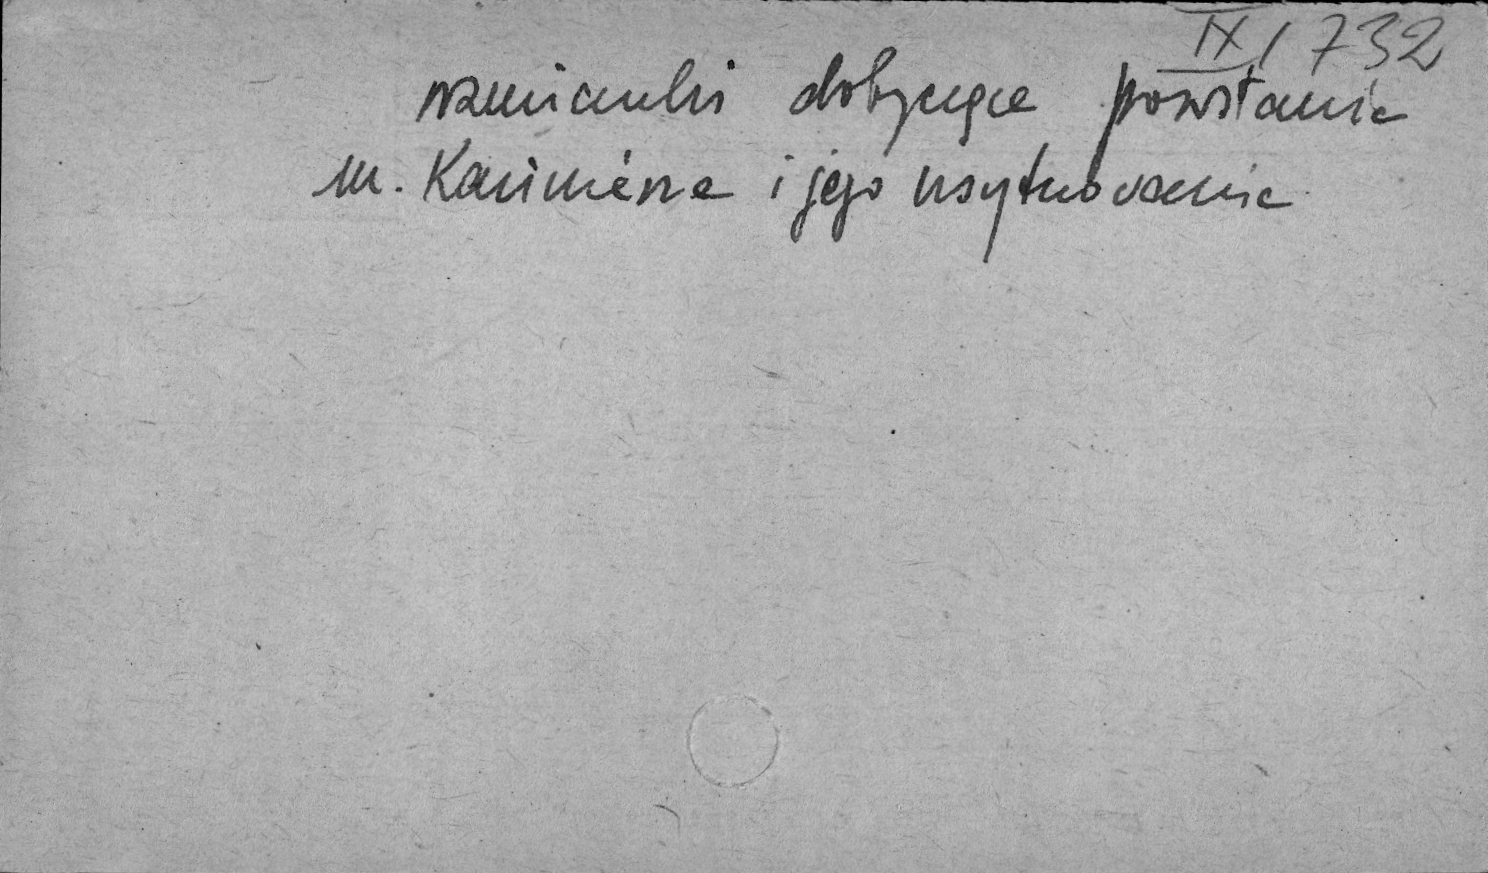 IX/732
wzmianki dotyczące powstania
m. Kazimierza i jego usytuowanie